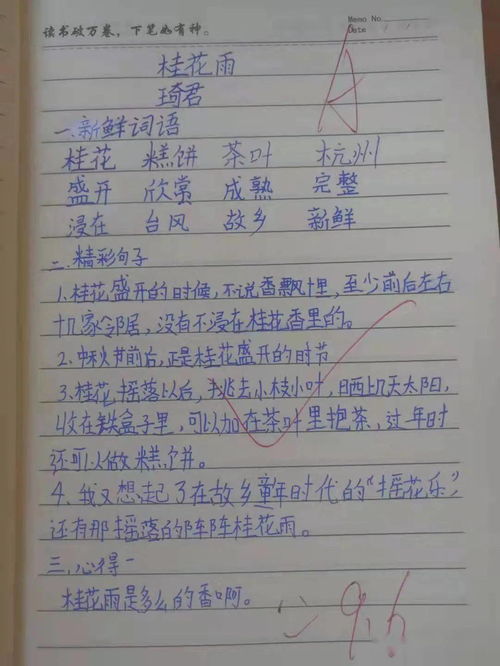 读书破万卷，下笔如有神。
Memo No.
Date
A
桂花雨
琦君
一.新鲜词语
桂花 糕饼 茶叶 杭州
盛开 欣赏 成熟 完整
浸在 台风 故乡 新鲜
二.精彩句子
1.桂花盛开的时候，不说香飘十里，至少前后左右
十几家邻居，没有不浸在桂花香里的。
2.中秋节前后，正是桂花盛开的时节
3.桂花摇落以后，挑去小枝小叶，晒上几天太阳，
收在铁盒子里，可以加在茶叶里泡茶，过年时
还可以做糕饼。
4.我又想起了在故乡童年时代的“摇花乐”，
还有那摇落的阵阵桂花雨。
三.心得一
桂花雨是多么的香啊。
9.6